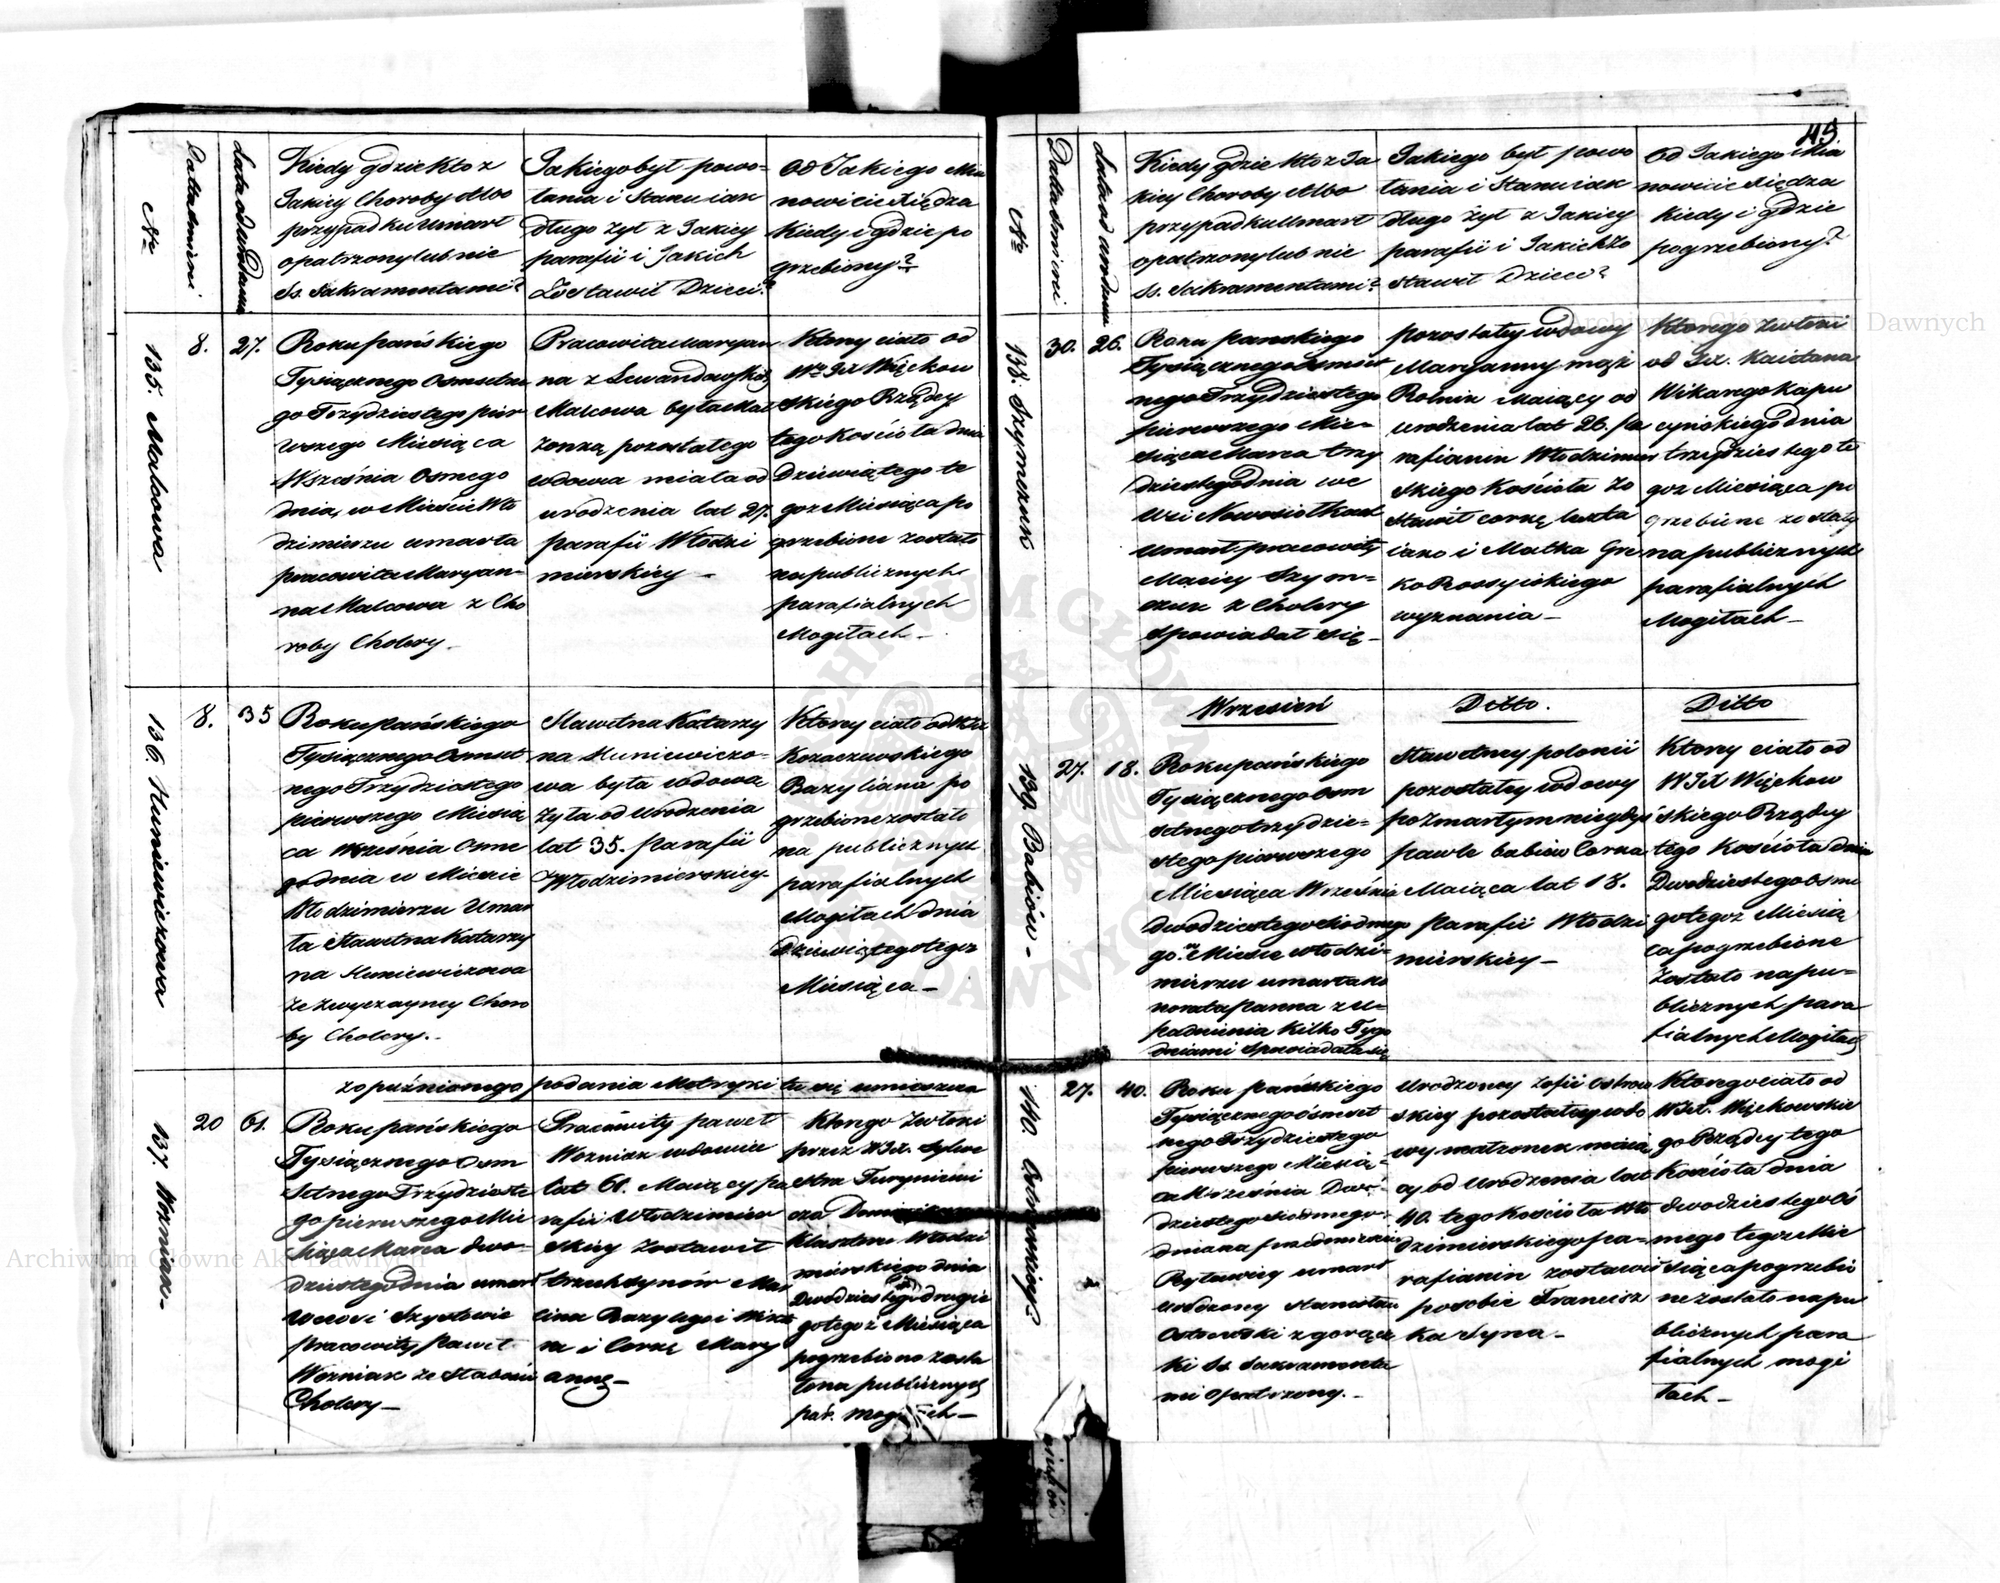 45
№
Data śmierci
Lata od urodzenia
Kiedy gdzie kto z
Jakiey Choroby Albo
przypadku Umarł
opatrzony lub nie
Ss. Sakramentami?
Jakiego był powo-
łania i Stanu iak
długo żył z Jakiey
parafii i Jakich
Zostawił Dzieci?
Od Jakiego Mia
nowicie Xiędza
Kiedy i gdzie po
grzebiony?
135. Malcowa
8.
27.
Roku Pańskiego
Tysiącznego Osmsetne
go Trzydziestego pier
wszego Miesiąca
Września Osmego
dnia, w Mieście Wło
dzimierzu umarła
pracowita Maryan-
na Malcowa z Cho
roby Cholery.
Pracowita Maryan
na z Lewandowskich
Malcowa była Mał
żonką pozostałego
wdowca miała od
urodzenia lat 27.
Parafii Włodzi
mierskiey -
Ktorey ciało od
WJX Więckow
skiego Rządcy
tego Kościoła dnia
Dziewiątego te
goż Miesiąca po
grzebione zostało
na publicznych
parafialnych
Mogiłach -
136. Huniewiczowa
8.
35
Roku pańskiego
Tysiącznego Osmset
nego Trzydziestego
pierwszego Miesią
ca Września Osme
go dnia w Mieście
Włodzimierzu Umar
ła Sławetna Katarzy
na Huniewiczowa
ze zwyczayney Choro
by Cholery.
Sławetna Katarzy
na Huniewiczo-
wa była wdowa
żyła od Urodzenia
lat 35. Parafii
Włodzimierskiey
Ktorey ciało od
Kozaczewskiego
Bazyliana po
grzebione zostało
na publicznych
parafialnych
Mogiłach dnia
dziewiątego tegoż
Miesiąca -
z opuźnionego podania Metryki tu się umieszcza
137. Wozniak -
20
61.
Roku pańskiego
Tysiącznego Osm
Setnego Trzydzieste
go pierwszego Mie
siąca Marca dwu-
dziestego dnia umarł
we wsi
pracowity Paweł
Wozniak ze Słabości
Cholery -
Pracowity paweł
Wozniak wdowiec
lat 61. Maiący pa
rafii Włodzimier
skiey Zostawił
trzech synów Mar
cina Bazylego i
na i Corkę Mary
annę -
Ktorego Zwłoki
przez WJX. Sylwe
stra
cza
klasztoru Włodzi
mierskiego dnia
Dwudziestego drugie
go tegoż Miesiąca
pogrzebiono zosta
ło na publicznych
par. Mogiłach -
№
Data śmierci
Lata od urodzen
Kiedy gdzie kto z Ja
kiey Choroby Albo
przypadku Umarł
opatrzony lub nie
Ss. Sakramentami?
Jakiego był powo
łania i Stanu iak
długo żył z Jakiey
parafii i Jakich Zo
stawił Dzieci?
Od Jakiego Mia
nowicie Xiędza
kiedy i gdzie
pogrzebiony?
138. Szymczuk
30.
26.
Roku pańskiego
Tysiącznego Osmset
nego Trzydziestego
pierwszego Mie-
siąca Marca trzy
dziestego dnia we
Wsi Nowosiołkach
Umarł pracowity
Maciey Szym-
czuk z Cholery
Spowiadał się -
pozostałey wdowy
Maryanny mąż
Rolnik Maiący od
urodzenia lat 26. Pa
rafianin Włodzimier
skiego Kościoła Zo
stawił corkę
iako i Matka Gre
ko Rossyiskiego
wyznania -
Ktorego Zwłoki
od JX. Kaietana
Wikarego Kapu
cyńskiego dnia
trzydziestego te
goż Miesiąca po
grzebione zostały
na publicznych
parafialnych
Mogiłach -
Wrzesień
Ditto.
Ditto
139. Babiów -
27.
18.
Roku pańskiego
Tysiącznego Osm
setnego trzydzie-
stego pierwszego
Miesiąca Września
dwudziestego siodme
go w Mieście Włodzi-
mierzu umarła Ho
norata panna z u-
padnienia Kilko Tygo
dniami Spowiadała się
Sławetney polonii
pozostałey wdowy
po zmarłym niegdyś
pawle babiów Corka
Maiąca lat 18.
Parafii Włodzi
mierskiey -
Ktorey ciało od
WJX Więckow
skiego Rządcy
tego Kościoła dnia
Dwudziestego osme
go tegoż Miesią
ca pogrzebione
Zostało na pu-
blicznych para
fialnych Mogiłach
140. Ostrowskiego
27.
40.
Roku pańskiego
Tysiącznego ósmset
nego Trzydziestego
pierwszego Miesią-
ca Września Dwó-
dziestego siódmego
dnia na przedmieściu
umarł
Urodzony Stanisław
Ostrowski z gorącz
ki Ss. Sakramenta
mi Opatrzony. -
Urodzoney Zofii Ostrow
skiey pozostałey wdo
wy małżonek maią
cy od Urodzenia lat
40. tego Kościoła Wło
dzimierskiego Pa-
rafianin zostawił
po sobie Francisz
ka Syna -
Ktorego ciało od
WJX. Więckowskie
go Rządcy tego
Kościoła dnia
dwudziestego ós
mego tegoż Mie
siąca pogrzebio
ne zostało na pu
blicznych para
fialnych mogi
łach -
Archiwum Główne Akt Dawnych
Archiwum Główne Akt Dawnych
ARCHIWUM GŁÓWNE AKT DAWNYCH